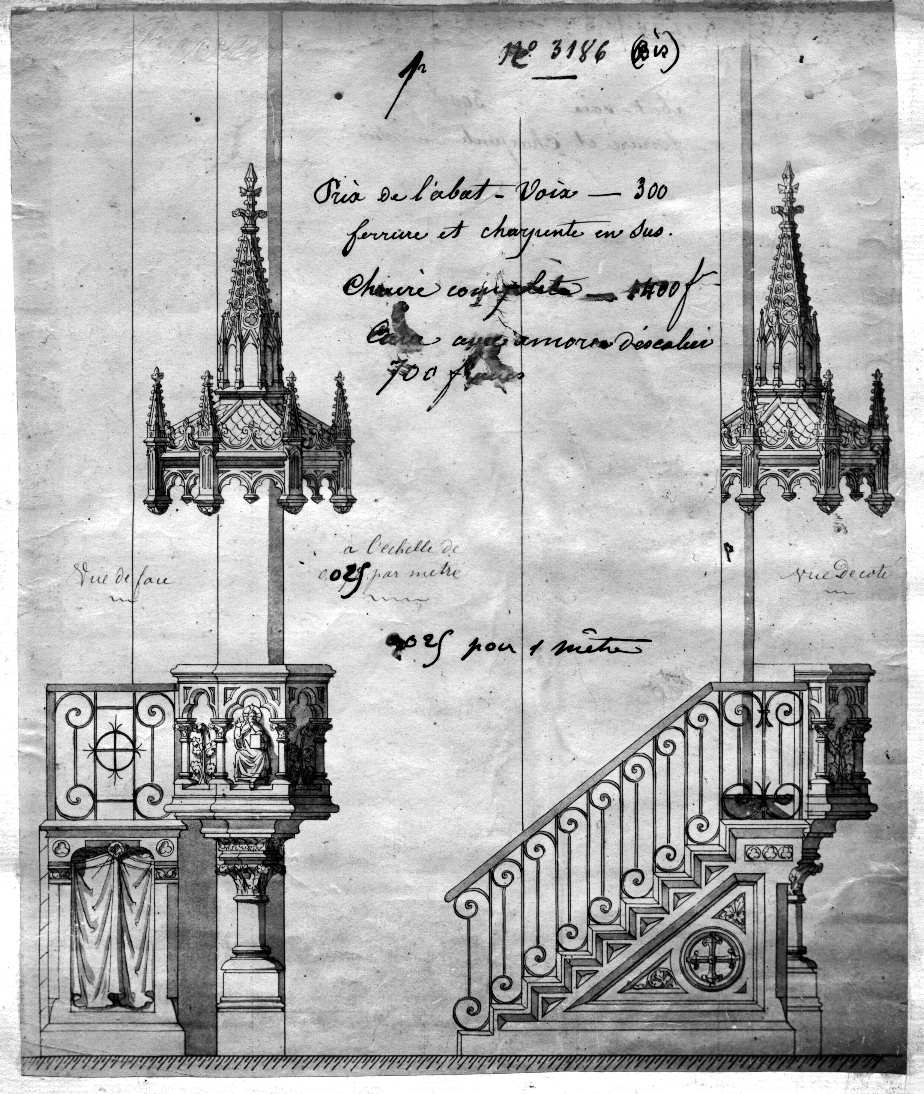 N° 3186 (Bis)
Prix de l'abat-Voix — 300
ferrure et charpente en Sus.
Chaire complète — 1400 f
Cuve avec amorce d'éscalier
700 francs
Vue de face
à l'échelle de
0.025 par mètre
vue De coté
0.025 pour 1 mètre